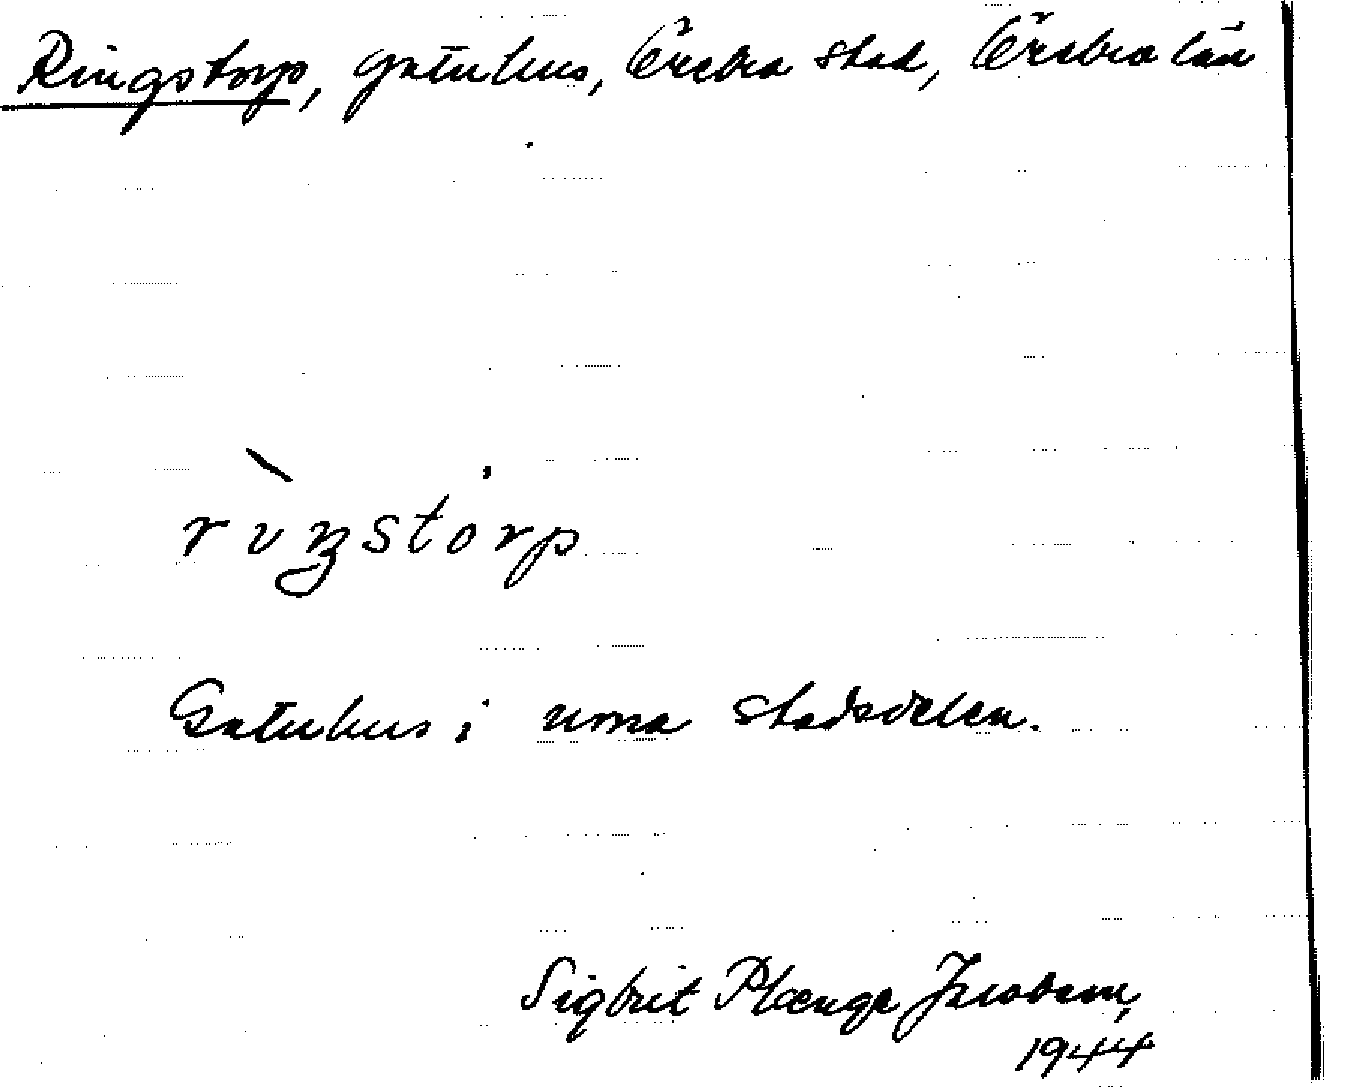 Ringstorp, gatuhus, Örebro stad, Örebro län
rıŋstorp
Gatuhus i norra stadsdelen.
Sigbrit Plænge Jacobson,
1944